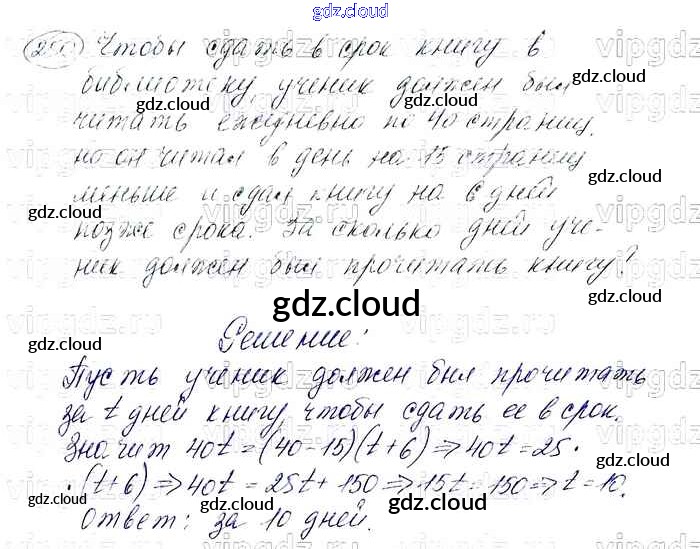 gdz.cloud
Чтобы сдать в срок книгу в
библиотеку, ученик должен был
gdz.cloud
gdz.cloud
читать ежедневно по 40 страниц,
но он читал в день на 15 страниц
gdz.cloud
меньше и сдал книгу на 6 дней
gdz.cloud
позже срока. За сколько дней уче-
ник должен был прочитать книгу?
gdz.cloud
gdz.cloud
Решение:
gdz.cloud
Пусть ученик должен был прочитать
за t дней книгу, чтобы сдать ее в срок.
gdz.cloud
Значит 40t = (40-15)(t+6) => 40t = 25 ·
gdz.cloud
· (t+6) => 40t = 25t + 150 => 15t = 150 => t = 10.
gdz.cloud
Ответ: за 10 дней.
gdz.cloud